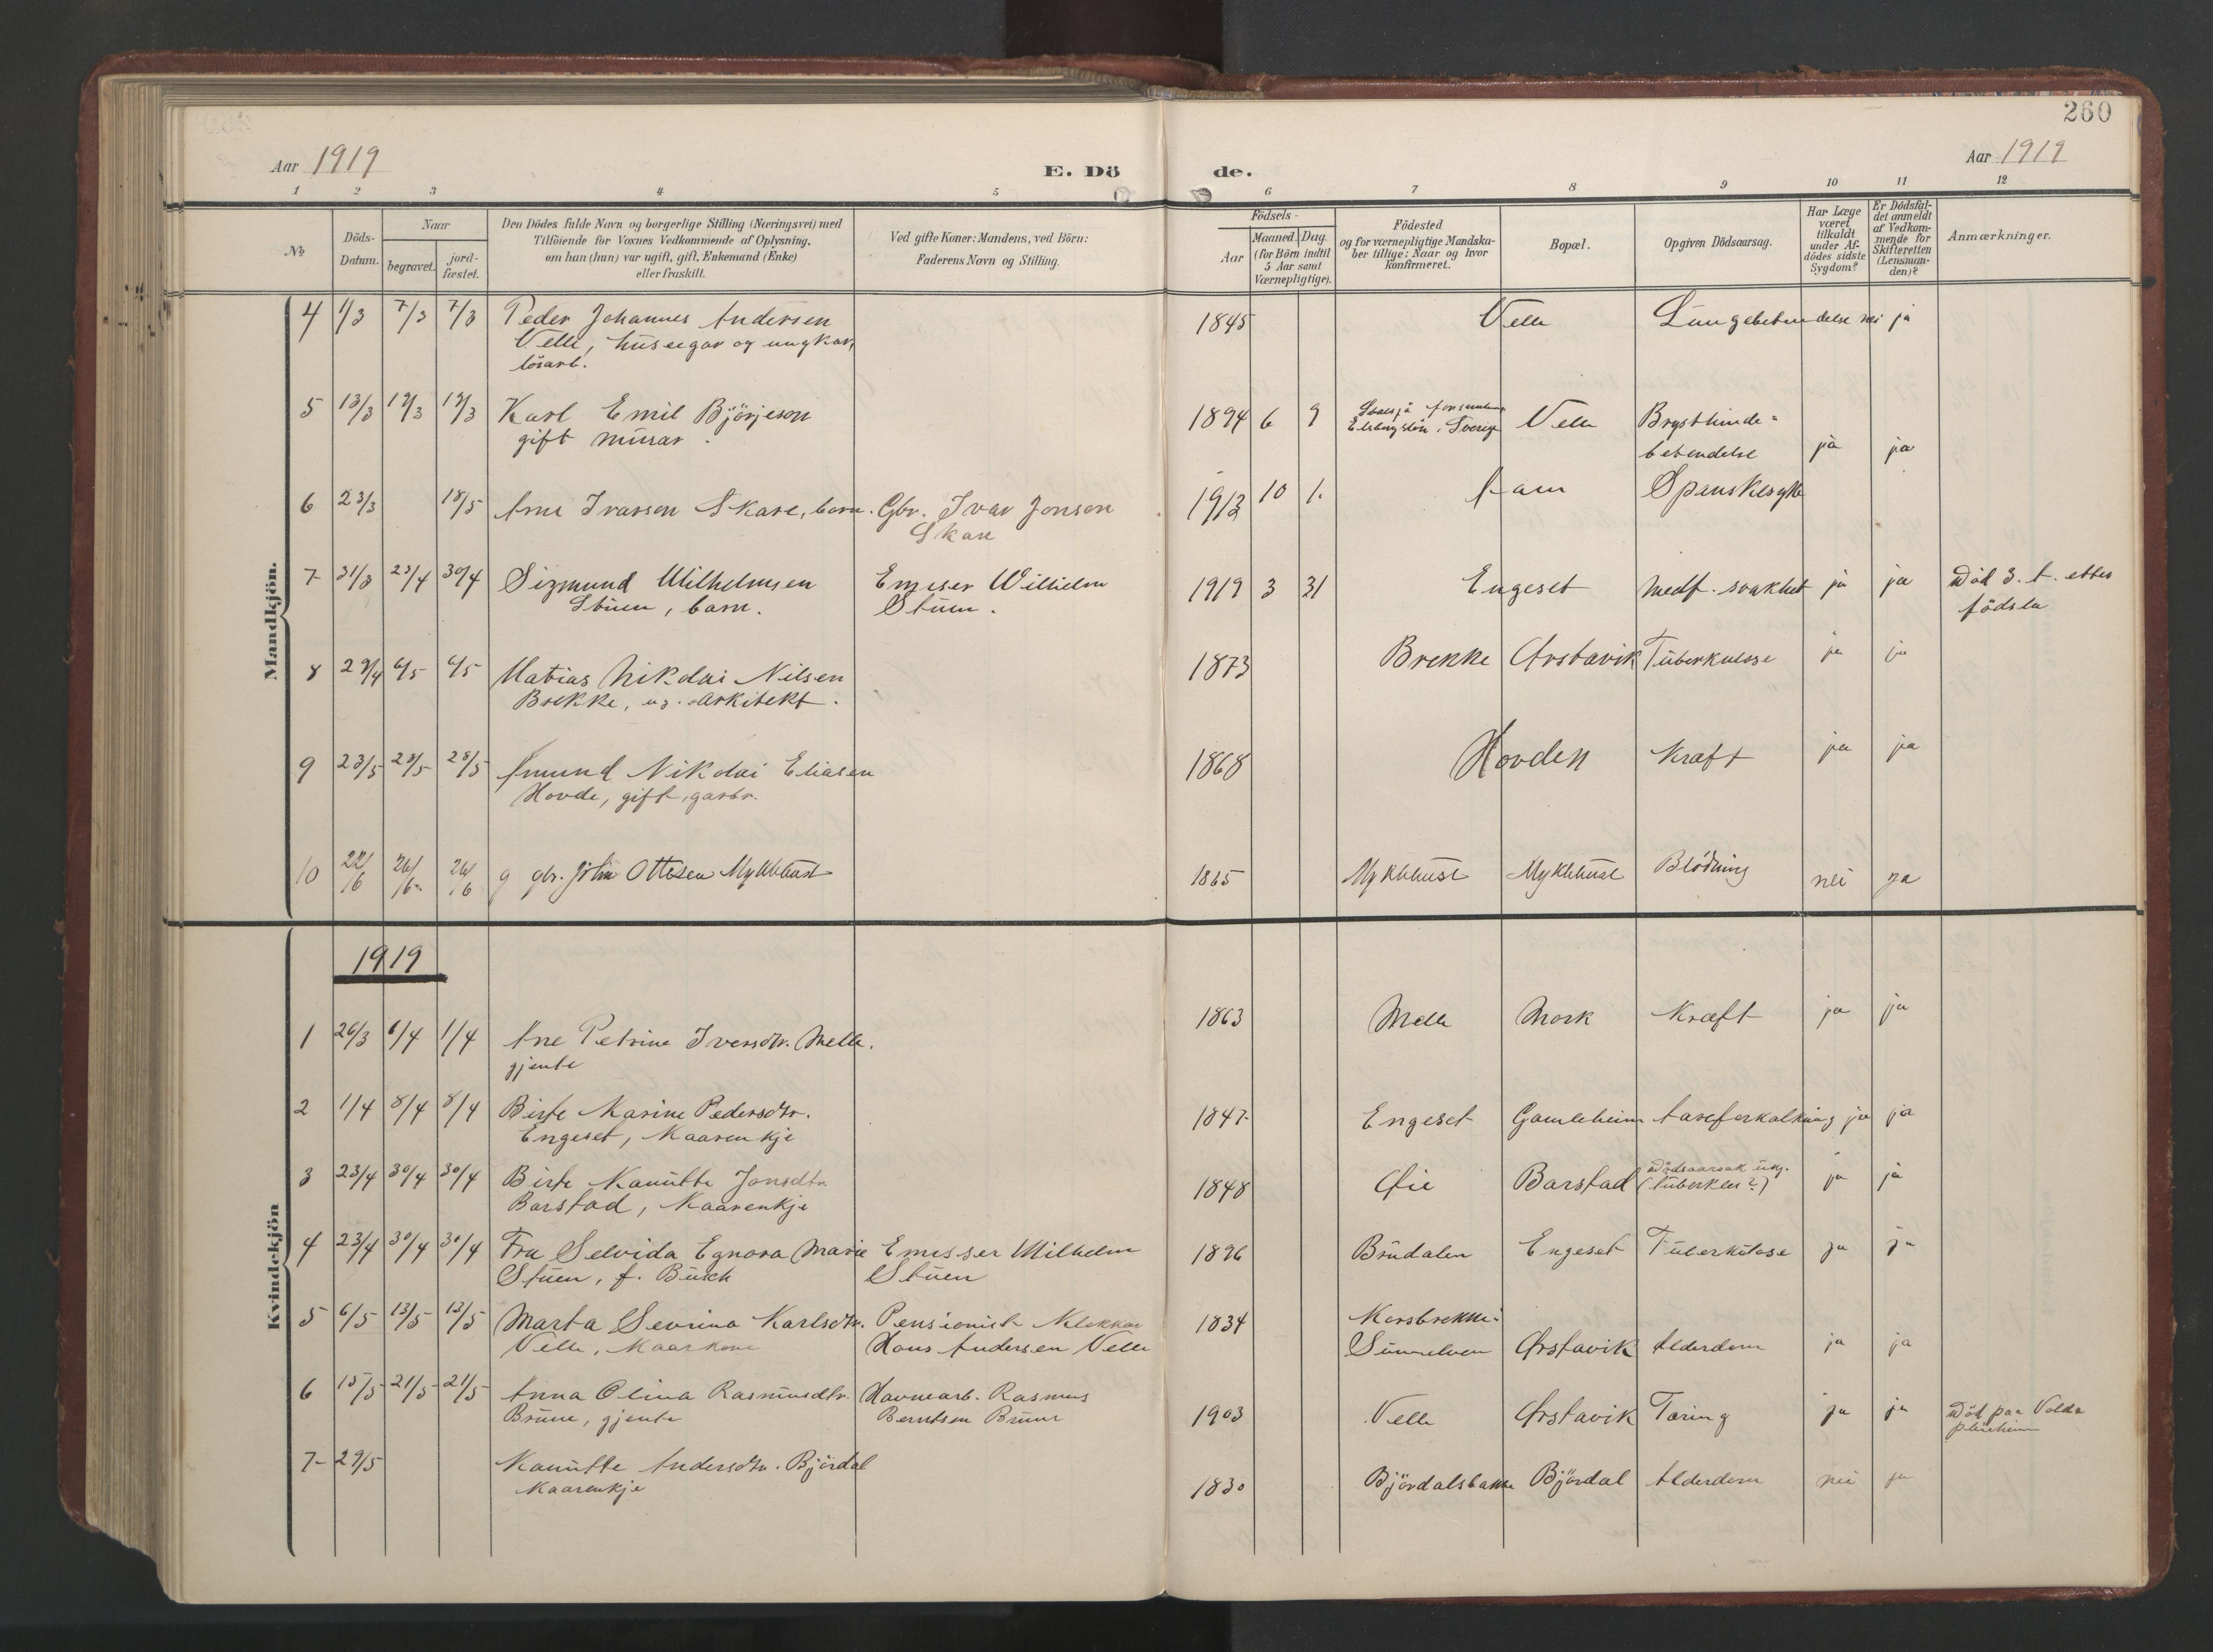 260
Aar 1919
E. Dö de.
Aar 1919
1 2 3 4 5 6 7 8 9 10 11 12
№
Döds-Datum.
Naar
begravet.
jord-fæstet.
Den Dödes fulde Navn og borgerlige Stilling (Næringsvei) med
Tilföiende for Voxnes Vedkommende af Oplysning,
om han (hun) var ugift, gift, Enkemand (Enke)
eller fraskilt.
Ved gifte Koner: Mandens, ved Börn:
Faderens Navn og Stilling.
Födsels-
Aar
Maaned. Dag.
(for Börn indtil
5 Aar samt
Værnepligtige).
Födested
og for værnepligtige Mandska-
ber tillige: Naar og hvor
konfirmeret.
Bopæl.
Opgiven Dödsaarsag.
Har Læge
været
tilkaldt
under Af-
dödes sidste
Sygdom?
Er Dödsfal-
det anmeldt
af Vedkom-
mende for
Skifteretten
(Lensman-
den)?
Anmærkninger.
Mandkjön.
4 1/3 7/3 7/3 Peder Johannes Andersen 1845 Velle Lungebetendelse nei ja
Velle, huseegar og ungkar,
lösarb.
5 13/3 19/3 19/3 Karl Emil Björjeson 1894 6 9 Sverige Velle Brysthinde=
gift murar. betendelse ja ja
6 23/3 18/5 Arne Ivarsen Skare, barn. Gbr. Ivar Jonson 1913 10 1. Aam Spanskesyke
Skare
7 31/3 23/4 30/4 Sigmund Wilhelmsen Emisær Wilhelm 1919 3 31 Engeset medf. svakhet ja ja död 3. t. etter
Stuen, barn. Stuen. födsla
8 29/4 6/5 6/5 Matias Nikolai Nilsen 1873 Brekke Örstavik Tuberkulose ja ja
Brekke, ug. arkitekt.
9 23/5 28/5 28/5 Amund Nikolai Eliasen 1868 Hovden Kræft ja ja
Hovde, gift, garbr.
10 22/6 26/6 26/6 g gbr. John Ottesen Myklebust 1865 Myklebust Myklebust Blödning nei ja
1919
Kvindekjön
1 26/3 1/4 1/4 Ane Petrine Iversdtr. Melle. 1863 Melle Mork Kræft ja ja
gjente
2 1/4 8/4 8/4 Birte Karine Pedersdtr. 1847 Engeset Gamleheim Aareforkalkning ja ja
Engeset, Kaarenkje
3 23/4 30/4 30/4 Birte Knutte Jonsdtr 1848 Öie Barstad Dödsaarsak ukj. ja ja
Barstad, Kaarenkje (tuberkler?)
4 23/4 30/4 30/4 Fru Selvida Egnora Marie Emissær Wilhelm 1896 Brudalen Engeset Tuberkulose ja ja
Stuen, f. Busch Stuen
5 6/5 13/5 13/5 Marta Sevrina Karlsdtr. Pensionist Klokkar 1834 Korsbrekke i
Velle, Kaarkone Hans Andersen Velle Sunnelven Örstavik Alderdom ja ja
6 15/5 21/5 21/5 Anna Olina Rasmusdtr. Havnearb. Rasmus 1903 Velle Örstavik Tæring ja ja död paa Volda
Brune, gjente Berntsen Brune pleieheim
7 29/5 Knutte Andersdtr. Björdal 1830 Björdalsbakke Björdal Alderdom nei ja
Kaarenkje